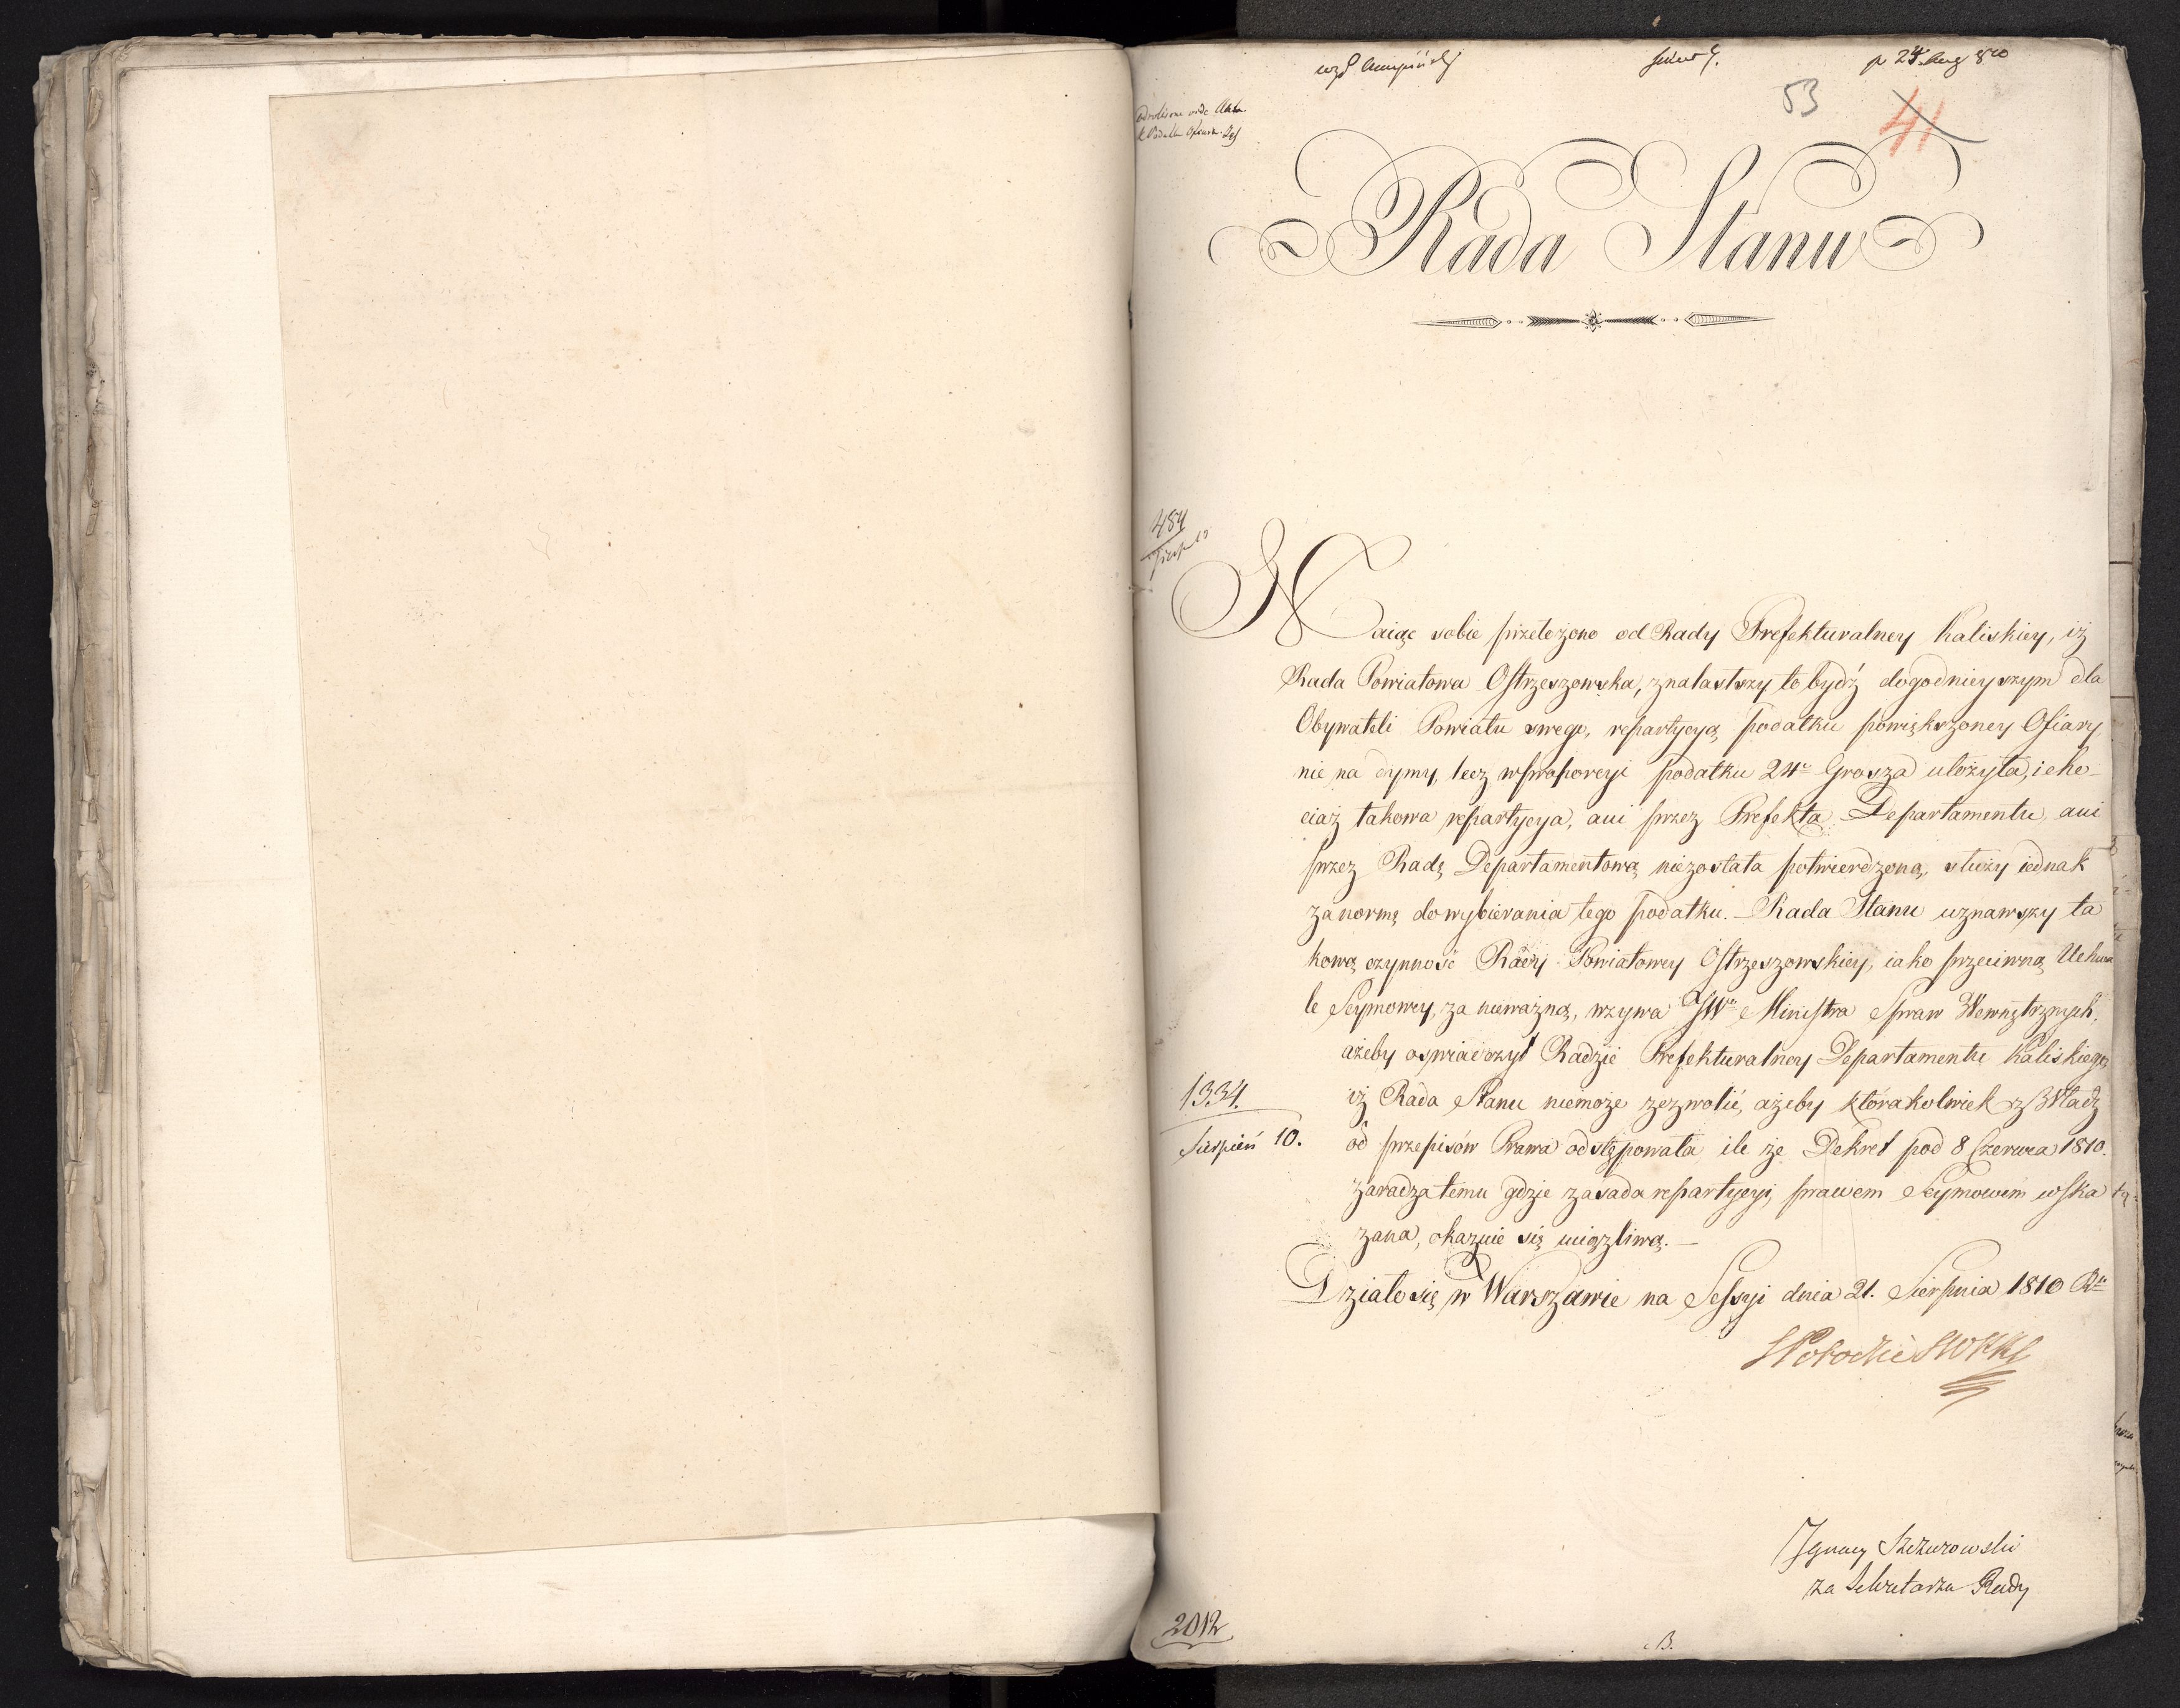 p 24 Aug 810
53
41
Rada Stanu
484
Sierp 10
Maiąc sobie przełożono od Rady Prefekturalney Kaliskiey, iż
Rada Powiatowa Ostrzeszowska, znalastszy to bydź dogodnieyszym dla
Obywateli Powiatu swego, repartycyą podatku powiększoney Ofiary
nie na dymy, lecz w proporcyi podatku 24go Grosza ułożyła, i cho-
ciaż takowa repartycya, ani przez Prefekta Departamentu, ani
przez Radę Departamentową niezostała potwierdzoną, służy iednak
za normę do wybierania tego podatku. – Rada Stanu uznawszy ta
kową czynność Rady Powiatowey Ostrzeszowskiey, iako przeciwną Uchwa
le Seymowey, za nieważną, wzywa JWo Ministra Spraw Wewnętrznych,
ażeby oświadczył Radzie Prefekturalney Departamentu Kaliskiego,
1334.
Sierpień 10.
iż Rada Stanu niemoże zezwolić, ażeby którakolwiek z Władz
od przepisów Prawa odstępowała, ile że Dekret pod 8 Czerwca 1810.
zaradza temu gdzie zasada repartycyi, prawem Seymowem wska
zana, okazuie się uciążliwą. –
Działo się w Warszawie na Sessyi dnia 21. Sierpnia 1810 Ru
SPotocki
Ignacy Szczurowski
za Sekretarza Rady
2012
B.